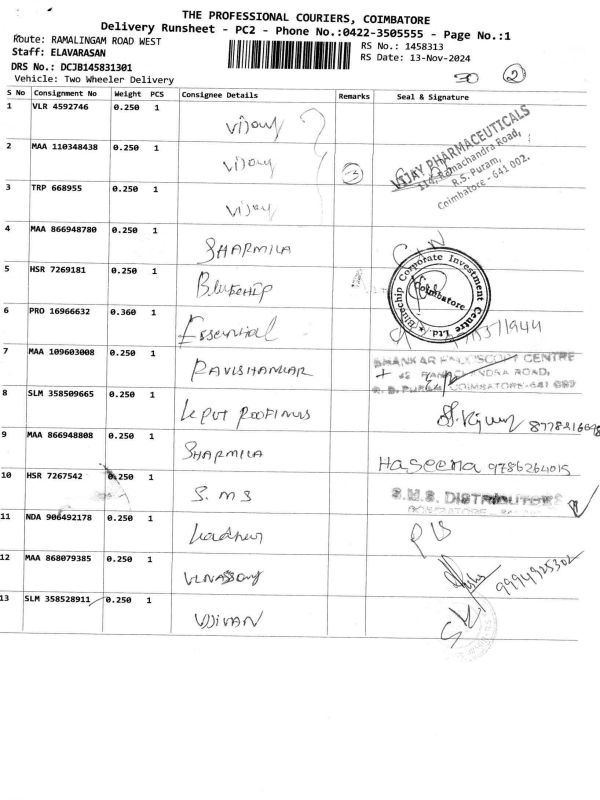 THE PROFESSIONAL COURIERS, COIMBATORE
Delivery Runsheet - PC2 - Phone No.:0422-3505555 - Page No.:1
Route: RAMALINGAM ROAD WEST
RS No.: 1458313
Staff: ELAVARASAN
RS Date: 13-Nov-2024
DRS No.: DCJB145831301
Vehicle: Two Wheeler Delivery
30 2
S No Consignment No Weight PCS Consignee Details Remarks Seal & Signature
1 VLR 4592746 0.250 1 Vijay
2 MAA 110348438 0.250 1 Vijay 3
VIJAY PHARMACEUTICALS
Ramachandra Road,
R.S. Puram,
Coimbatore - 641 002.
3 TRP 668955 0.250 1 Vijay
4 MAA 866948780 0.250 1 SHARMILA
5 HSR 7269181 0.250 1 Bluechip
Bluechip Corporate Investment Centre Ltd.
Coimbatore
6 PRO 16966632 0.360 1 Essential
7 MAA 109603008 0.250 1 RAVISHANKAR
SHANKAR ENDOSCOPY CENTRE
COIMBATORE-641 002
8 SLM 358509665 0.250 1
9 MAA 866948808 0.250 1 SHARMILA Haseena 9786264015
10 HSR 7267542 0.250 1 S.M.S S.M.S. DISTRIBUTORS
11 NDA 906492178 0.250 1
12 MAA 868079385 0.250 1 9994925302
13 SLM 358528911 0.250 1